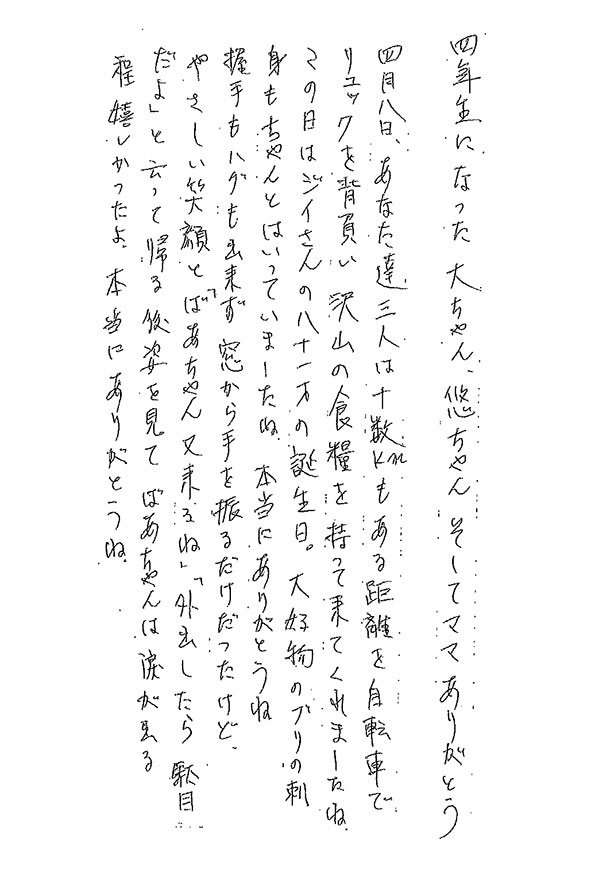 四年生になった大ちゃん、悠ちゃんそしてママありがとう
四月八日、あなた達三人は十数Kmもある距離を自転車で
リュックを背負い沢山の食糧を持って来てくれましたね。
この日はジイさんの八十一才の誕生日。大好物のブリの刺
身もちゃんとはいっていましたね。本当にありがとうね
握手もハグも出来ず窓から手を振るだけだったけど、
やさしい笑顔と「ばあちゃん又来るね」「外出したら駄目
だよ」と云って帰る後姿を見てばあちゃんは涙が出る
程嬉しかったよ、本当にありがとうね。